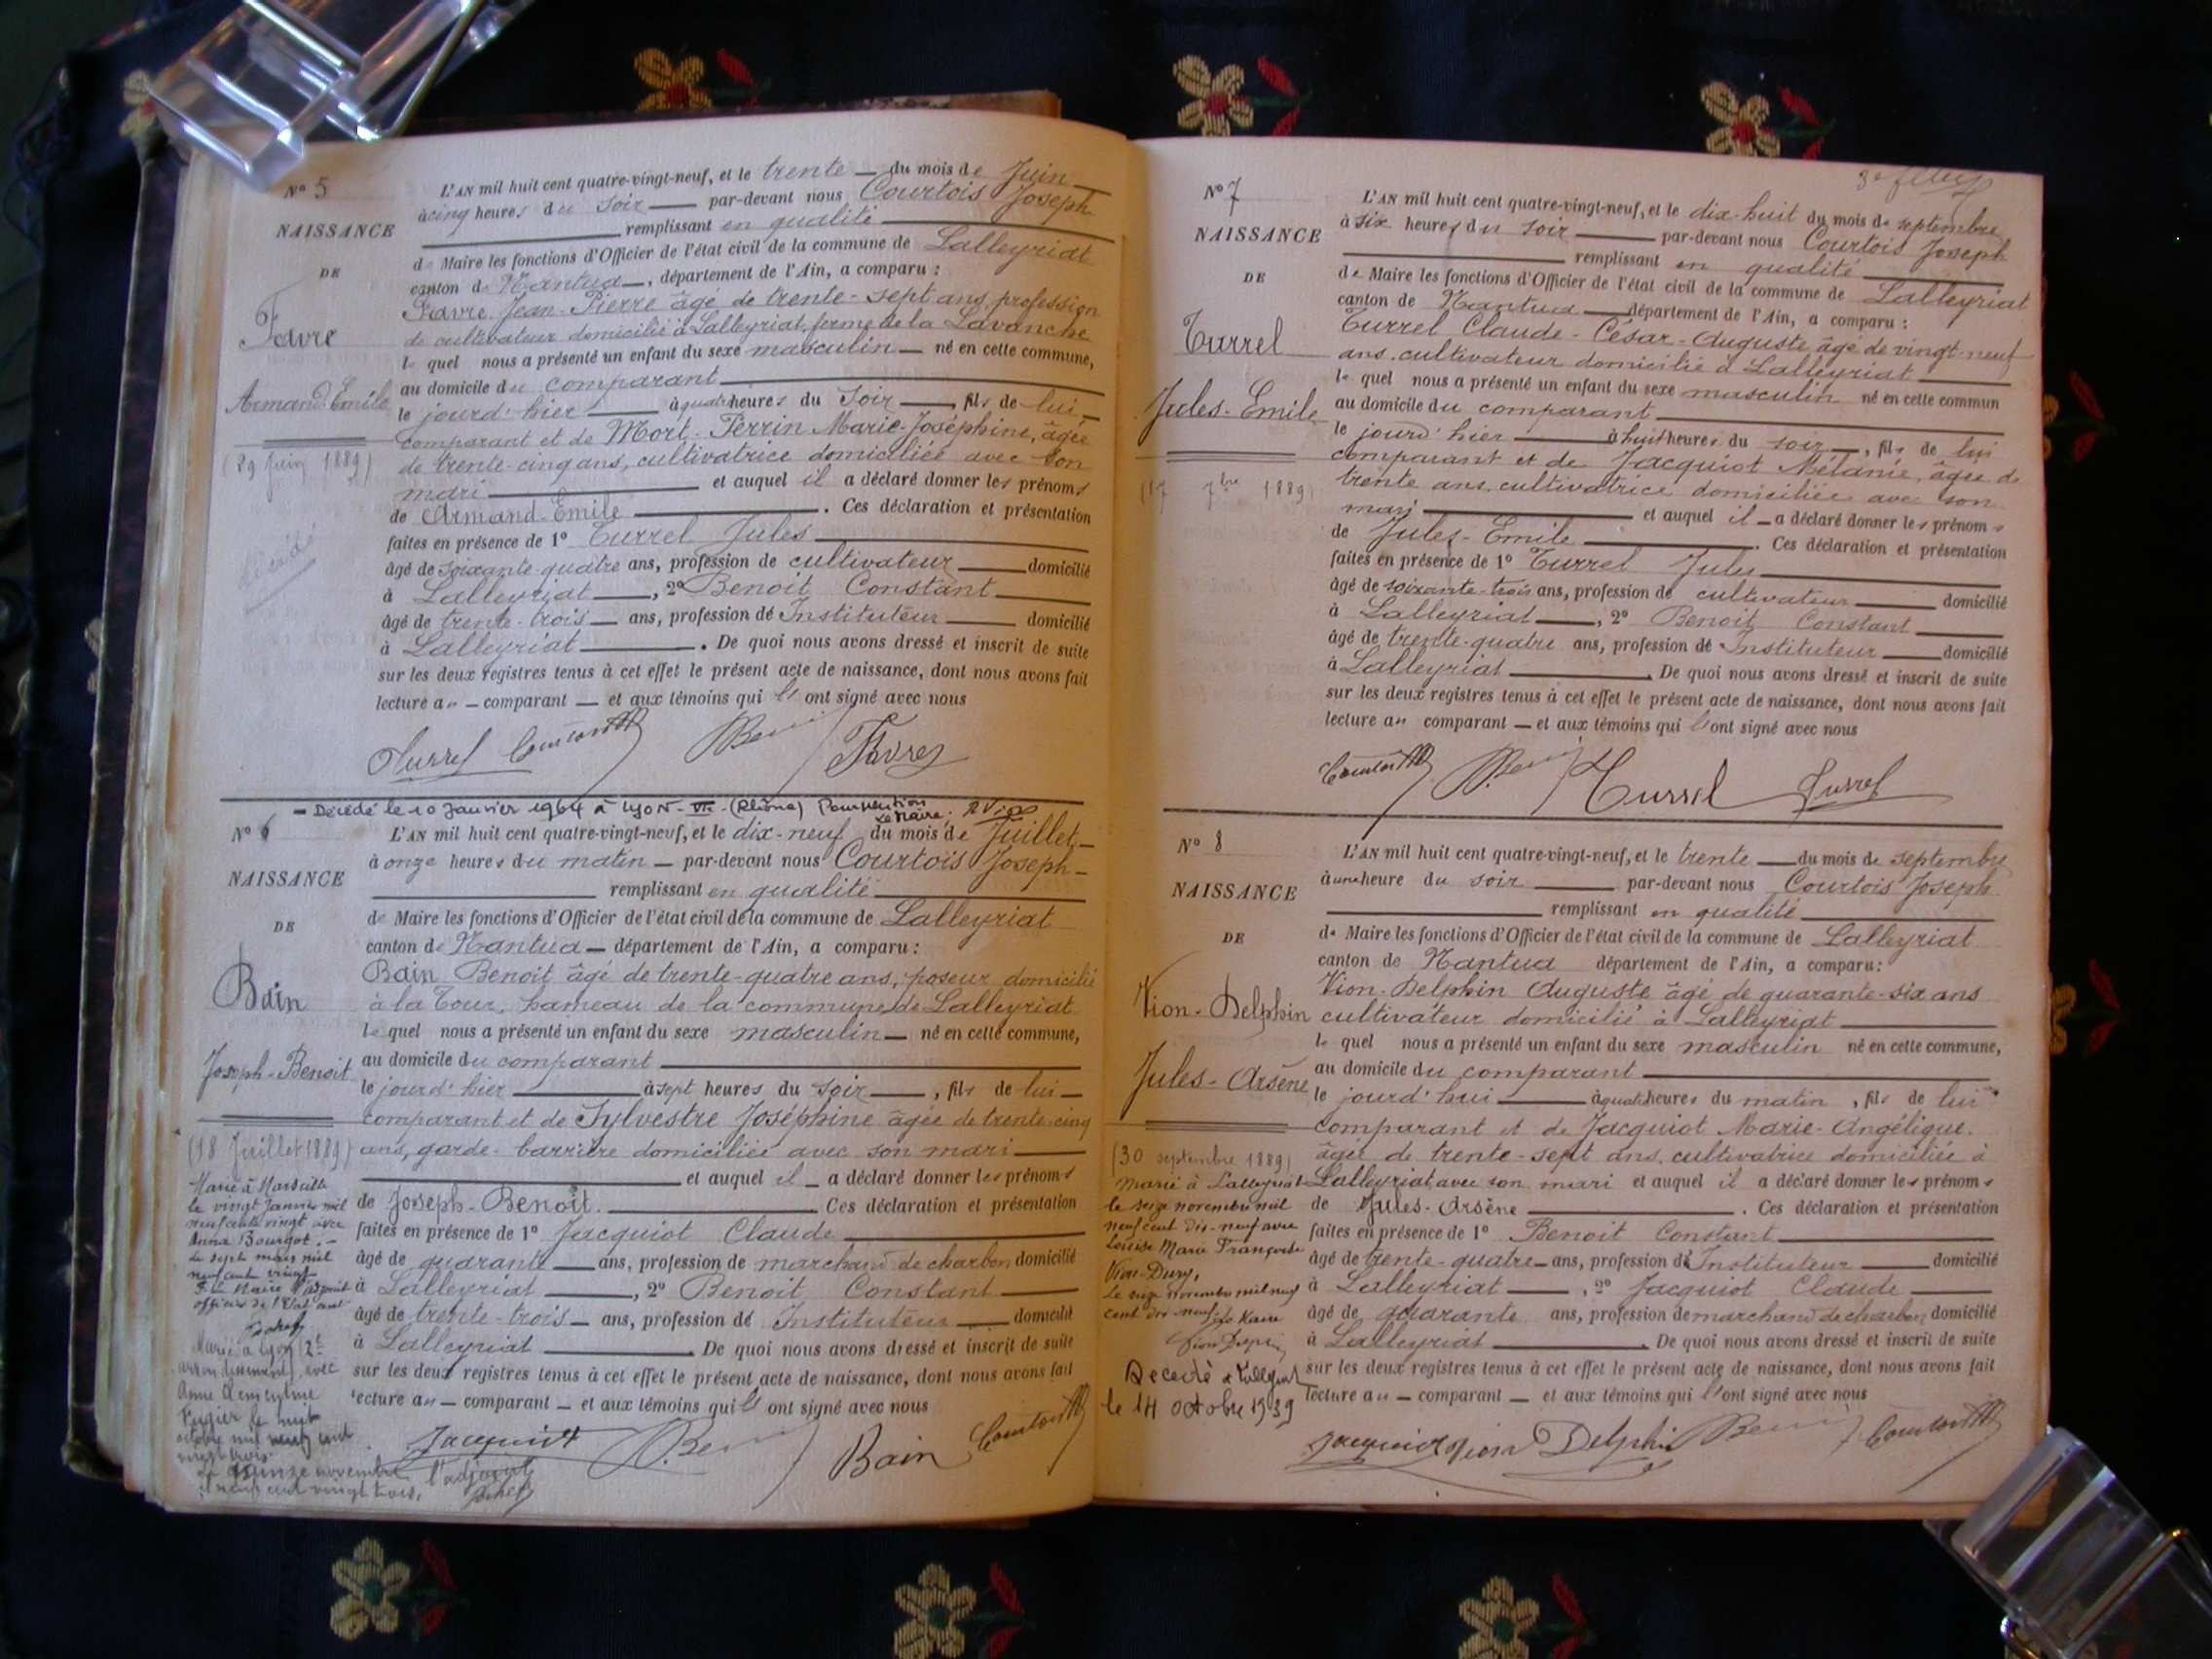 N° 5
NAISSANCE
DE
Favre
Armand Emile
(29 Juin 1889)
décédé
L'AN mil huit cent quatre-vingt-neuf, et le trente du mois de Juin
à cinq heures du soir par-devant nous Courtois Joseph
remplissant en qualité
de Maire les fonctions d'Officier de l'état civil de la commune de Lalleyriat
canton de Nantua, département de l'Ain, a comparu :
Favre Jean-Pierre âgé de trente-sept ans, profession
de cultivateur domicilié à Lalleyriat, ferme de la Lavanche
le quel nous a présenté un enfant du sexe masculin né en cette commune,
au domicile du comparant
le jourd'hier à quatre heures du soir, fils de lui
comparant et de Mort-Perrin Marie-Joséphine, âgée
de trente-cinq ans, cultivatrice domiciliée avec son
mari et auquel il a déclaré donner les prénoms
de Armand-Emile. Ces déclaration et présentation
faites en présence de 1° Turrel Jules
âgé de soixante quatre ans, profession de cultivateur domicilié
à Lalleyriat, 2° Benoit Constant
âgé de trente-trois ans, profession de Instituteur domicilié
à Lalleyriat. De quoi nous avons dressé et inscrit de suite
sur les deux registres tenus à cet effet le présent acte de naissance, dont nous avons fait
lecture au comparant et aux témoins qui l'ont signé avec nous
Turrel Courtois Favre
- Décédé le 10 Janvier 1964 à Lyon-VII- (Rhône) Pour mention
Le Maire:
N° 6
NAISSANCE
DE
Bain
Joseph-Benoit
(18 Juillet 1889)
Marié à Marseille
le vingt Janvier mil
neuf cent vingt avec
Anna Bourgot.-
le sept mars mil
neuf cent vingt
officier de l'Etat civil
Marié à Lyon (2e
arrondissement) avec
Anne Clementine
Fugier le huit
octobre mil neuf cent
vingt trois
le quinze novembre l'adjoint
neuf cent vingt trois,
L'AN mil huit cent quatre-vingt-neuf, et le dix-neuf du mois de Juillet
à onze heures du matin par-devant nous Courtois Joseph
remplissant en qualité
de Maire les fonctions d'Officier de l'état civil de la commune de Lalleyriat
canton de Nantua département de l'Ain, a comparu :
Bain Benoit âgé de trente-quatre ans, poseur domicilié
à la Tour, hameau de la commune de Lalleyriat
le quel nous a présenté un enfant du sexe masculin né en cette commune,
au domicile du comparant
le jourd'hier à sept heures du soir, fils de lui
comparant et de Sylvestre Joséphine âgée de trente-cinq
ans, garde-barrière domiciliée avec son mari
et auquel il a déclaré donner les prénoms
de Joseph-Benoit. Ces déclaration et présentation
faites en présence de 1° Jacquiot Claude
âgé de quarante ans, profession de marchand de charbon domicilié
à Lalleyriat, 2° Benoit Constant
âgé de trente-trois ans, profession de Instituteur domicilié
à Lalleyriat. De quoi nous avons dressé et inscrit de suite
sur les deux registres tenus à cet effet le présent acte de naissance, dont nous avons fait
lecture au comparant et aux témoins qui l'ont signé avec nous
Jacquiot Bain Courtois
N° 7
NAISSANCE
DE
Turrel
Jules-Emile
(17 7bre 1889)
L'AN mil huit cent quatre-vingt-neuf, et le dix-huit du mois de septembre
à six heures du soir par-devant nous Courtois Joseph
remplissant en qualité
de Maire les fonctions d'Officier de l'état civil de la commune de Lalleyriat
canton de Nantua département de l'Ain, a comparu :
Turrel Claude-César-Auguste âgé de vingt-neuf
ans, cultivateur domicilié à Lalleyriat
le quel nous a présenté un enfant du sexe masculin né en cette commun
au domicile du comparant
le jourd'hier à huit heures du soir, fils de lui
comparant et de Jacquiot Mélanie, âgée de
trente ans, cultivatrice domiciliée avec son
mari et auquel il a déclaré donner les prénoms
de Jules-Emile. Ces déclaration et présentation
faites en présence de 1° Turrel Jules
âgé de soixante-trois ans, profession de cultivateur domicilié
à Lalleyriat, 2° Benoit Constant
âgé de trente-quatre ans, profession de Instituteur domicilié
à Lalleyriat. De quoi nous avons dressé et inscrit de suite
sur les deux registres tenus à cet effet le présent acte de naissance, dont nous avons fait
lecture au comparant et aux témoins qui l'ont signé avec nous
Courtois Turrel Turrel
N° 8
NAISSANCE
DE
Vion-Delphin
Jules-Arsène
(30 septembre 1889)
Marié à Lalleyriat
le seize novembre mil
neuf cent dix-neuf avec
Louise Marie Françoise
Vion-Dury,
Le seize novembre mil neuf
cent dix-neuf Le Maire
Décédé à Lalleyriat
le 14 octobre 1939
L'AN mil huit cent quatre-vingt-neuf, et le trente du mois de septembre
à une heure du soir par-devant nous Courtois Joseph
remplissant en qualité
de Maire les fonctions d'Officier de l'état civil de la commune de Lalleyriat
canton de Nantua département de l'Ain, a comparu :
Vion-Delphin Auguste âgé de quarante-six ans
cultivateur domicilié à Lalleyriat
le quel nous a présenté un enfant du sexe masculin né en cette commune,
au domicile du comparant
le jourd'hui à quatre heures du matin, fils de lui
comparant et de Jacquiot Marie-Angélique,
âgée de trente-sept ans, cultivatrice domiciliée à
Lalleyriat avec son mari et auquel il a déclaré donner les prénoms
de Jules-Arsène. Ces déclaration et présentation
faites en présence de 1° Benoit Constant
âgé de trente-quatre ans, profession de Instituteur domicilié
à Lalleyriat, 2° Jacquiot Claude
âgé de quarante ans, profession de marchand de charbon domicilié
à Lalleyriat. De quoi nous avons dressé et inscrit de suite
sur les deux registres tenus à cet effet le présent acte de naissance, dont nous avons fait
lecture au comparant et aux témoins qui l'ont signé avec nous
Jacquiot Vion Delphin Courtois